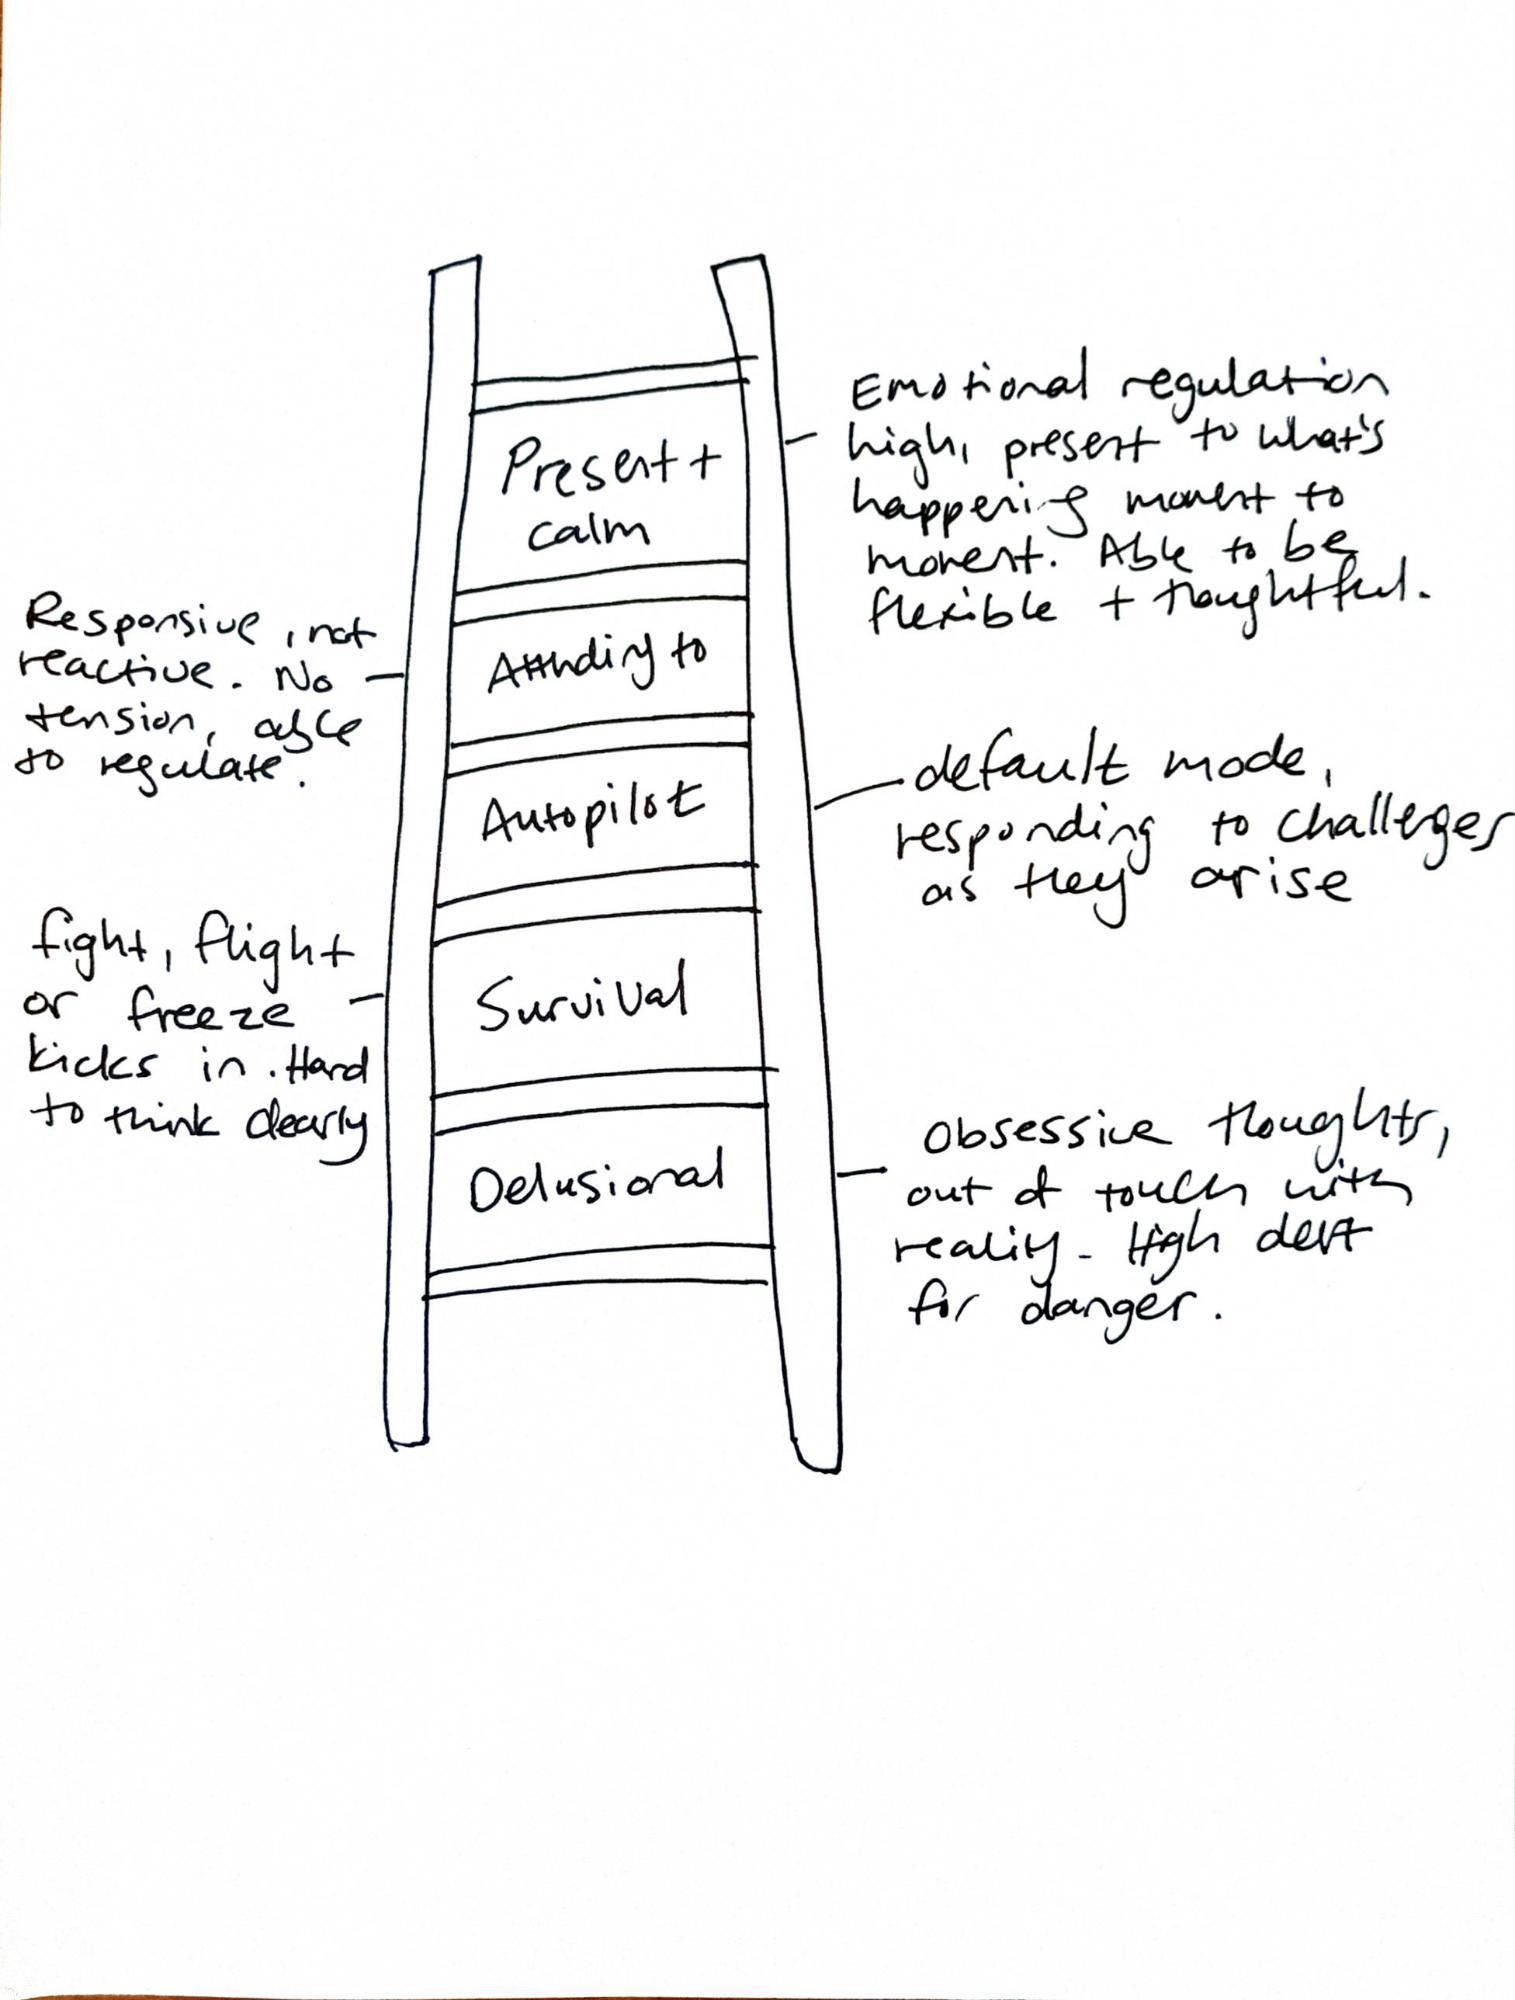 Present +
calm
Emotional regulation
high, present to what's
happening moment to
moment. Able to be
flexible + thoughtful.
Attending to
Responsive, not
reactive. No
tension, able
to regulate.
Autopilot
default mode,
responding to challenges
as they arise
Survival
fight, flight
or freeze
kicks in. Hard
to think clearly
Delusional
Obsessive thoughts,
out of touch with
reality. High alert
for danger.